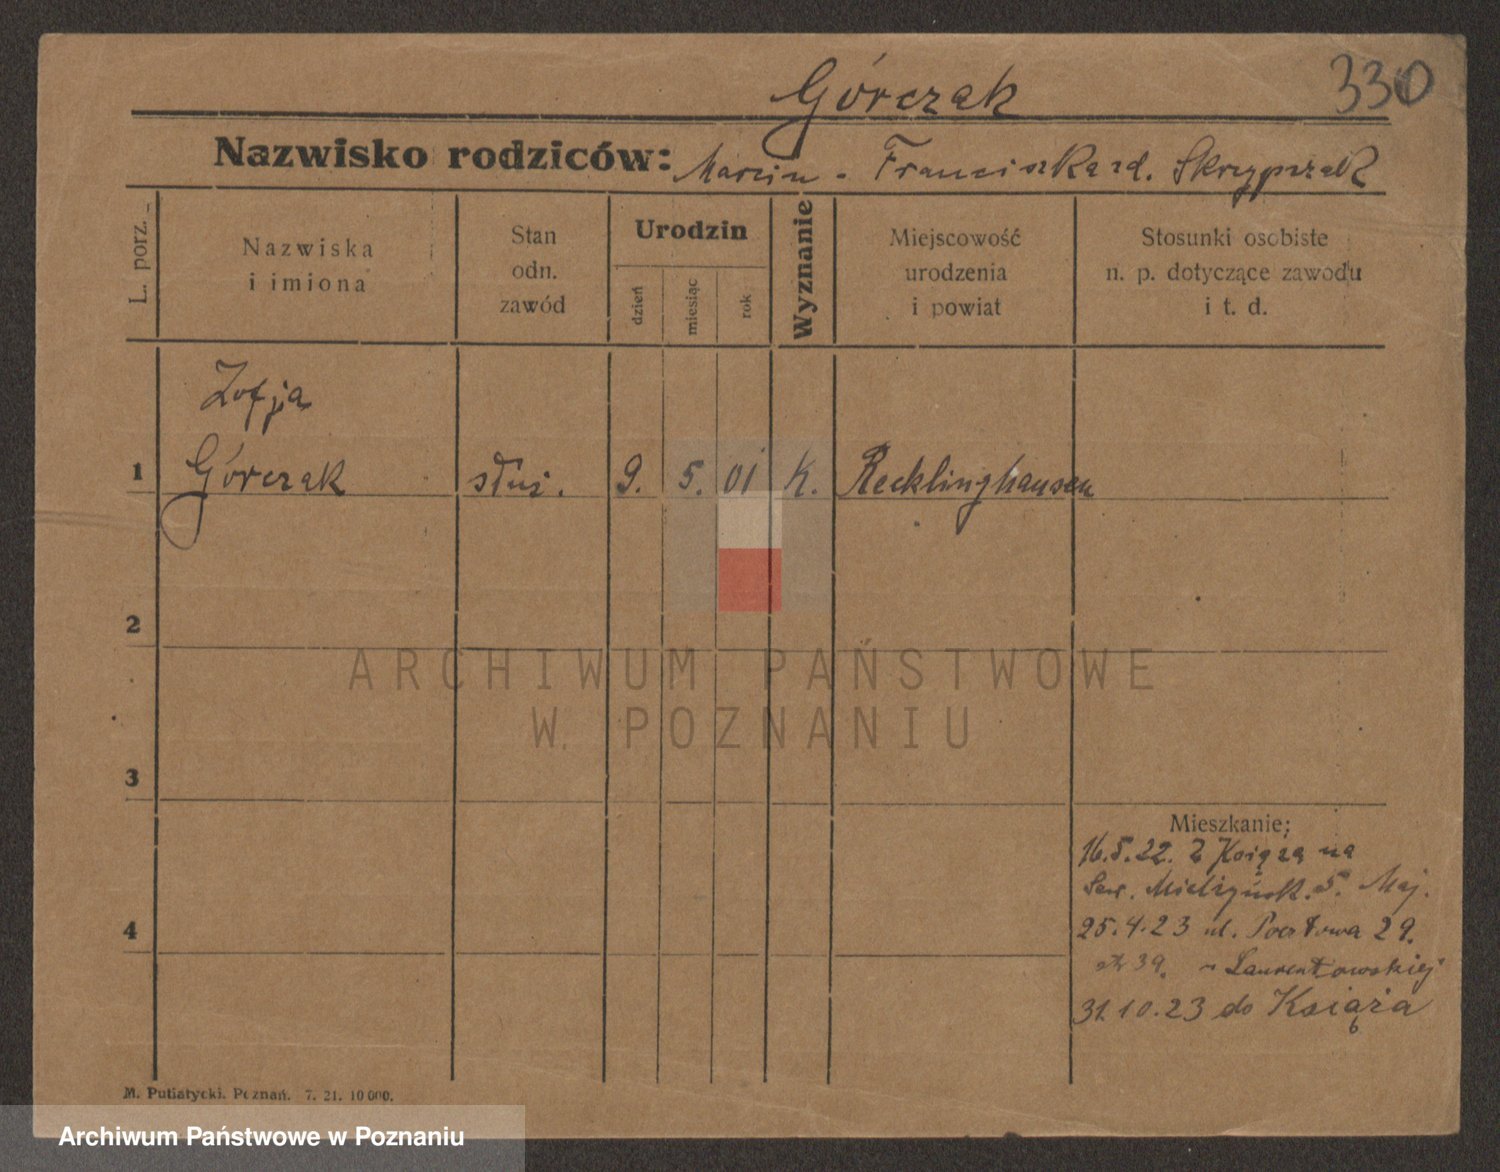 Górczak
330
Nazwisko rodziców: Marcin - Franciszka zd. Skrzypczak
L. porz.
Nazwiska
i imiona
Stan
odn.
zawód
Urodzin
dzień
miesiąc
rok
Wyznanie
Miejscowość
urodzenia
i powiat
Stosunki osobiste
n. p. dotyczące zawodu
i t. d.
Zofja
1 Górczak służ. 9. 5. 01 K. Recklinghausen
2
ARCHIWUM PAŃSTWOWE
W POZNANIU
3
Mieszkanie:
16.5.22. z Książa na
Mielżyńsk. 5. Maj.
4
25.4.23 ul. Pocztowa 29.
39. Laurentowskiej
31.10.23 do Książa
M. Putiatycki. Poznań. 7. 21. 10000.
Archiwum Państwowe w Poznaniu